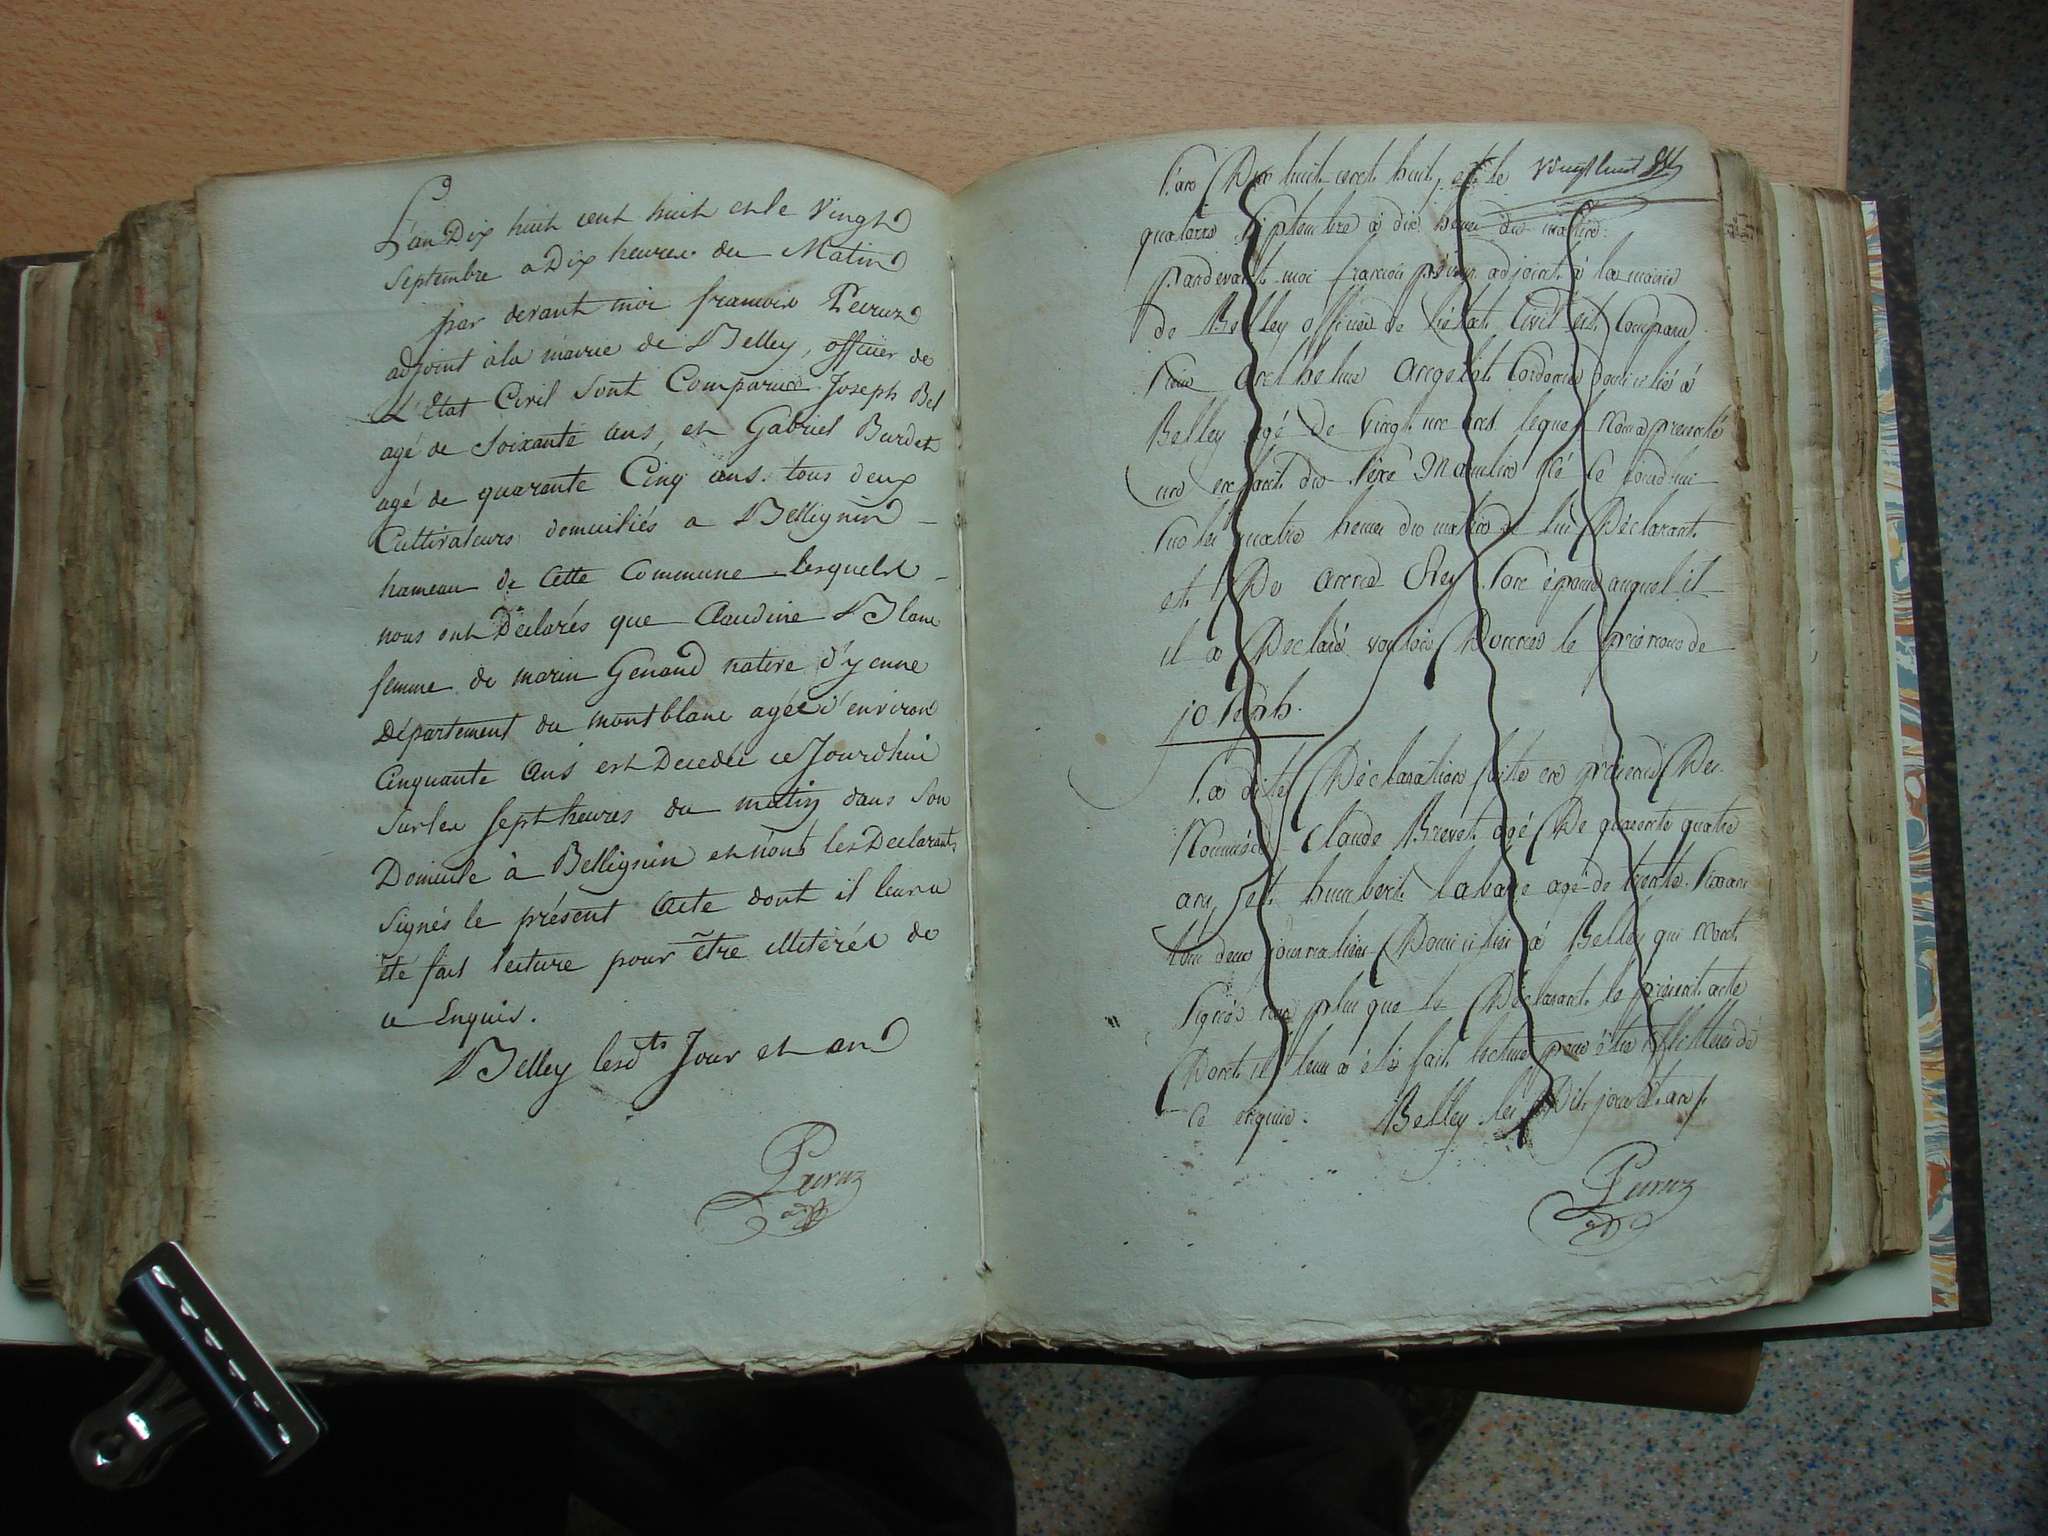 L'an Dix huit cent huit et le Vingt
Septembre a Dix heures du Matin
par devant moi francois Peuruz
adjoint à la mairie de Belley, officier de
L'Etat Civil sont Comparus Joseph Bel
agé de soixante ans, et Gabriel Burdet
agé de quarante Cinq ans. tous deux
Cultivateurs domiciliés a Bellignin
hameau de Cette Commune lesquels
nous ont Déclarés que Claudine Blanc
femme de marin Genand native d'yenne
Département du montblanc agée d'environ
Cinquante ans est Decedée ce Jourdhui
sur les sept heures du matin dans son
Domicile à Bellignin et n'ont les Declarants
signés le présent Acte dont il leur a
été fait lecture pour être illitérés de
ce Enquis.
Belley lesdts Jour et an
Peuruz
L'an Dix huit cent huit, et le
quatorze Septembre à dix heures du matin
pardevant moi francois adjoint à la mairie
de Belley officier de l'état Civil est Comparu
anthelme domicilié à
Belley agé de Vingt un ans lequel Nous a presenté
un enfant du sexe Masculin né ce jourd'hui
sur les quatre heures du matin de lui Déclarant
et De Rey son épouse auquel il
il a Déclaré vouloir Donner le prénom de
joseph.
La dite Déclaration faite en présence Des
Nommés Claude Brevet agé De quarente quatre
ans, et humbert agé de trente
tous deux journaliers Domiciliés à Belley qui n'ont
signés non plus que le Déclarant le présent acte
Dont il leur a été fait lecture pour être illitterés de
ce enquis. Belley les Dit jour et an
Peuruz